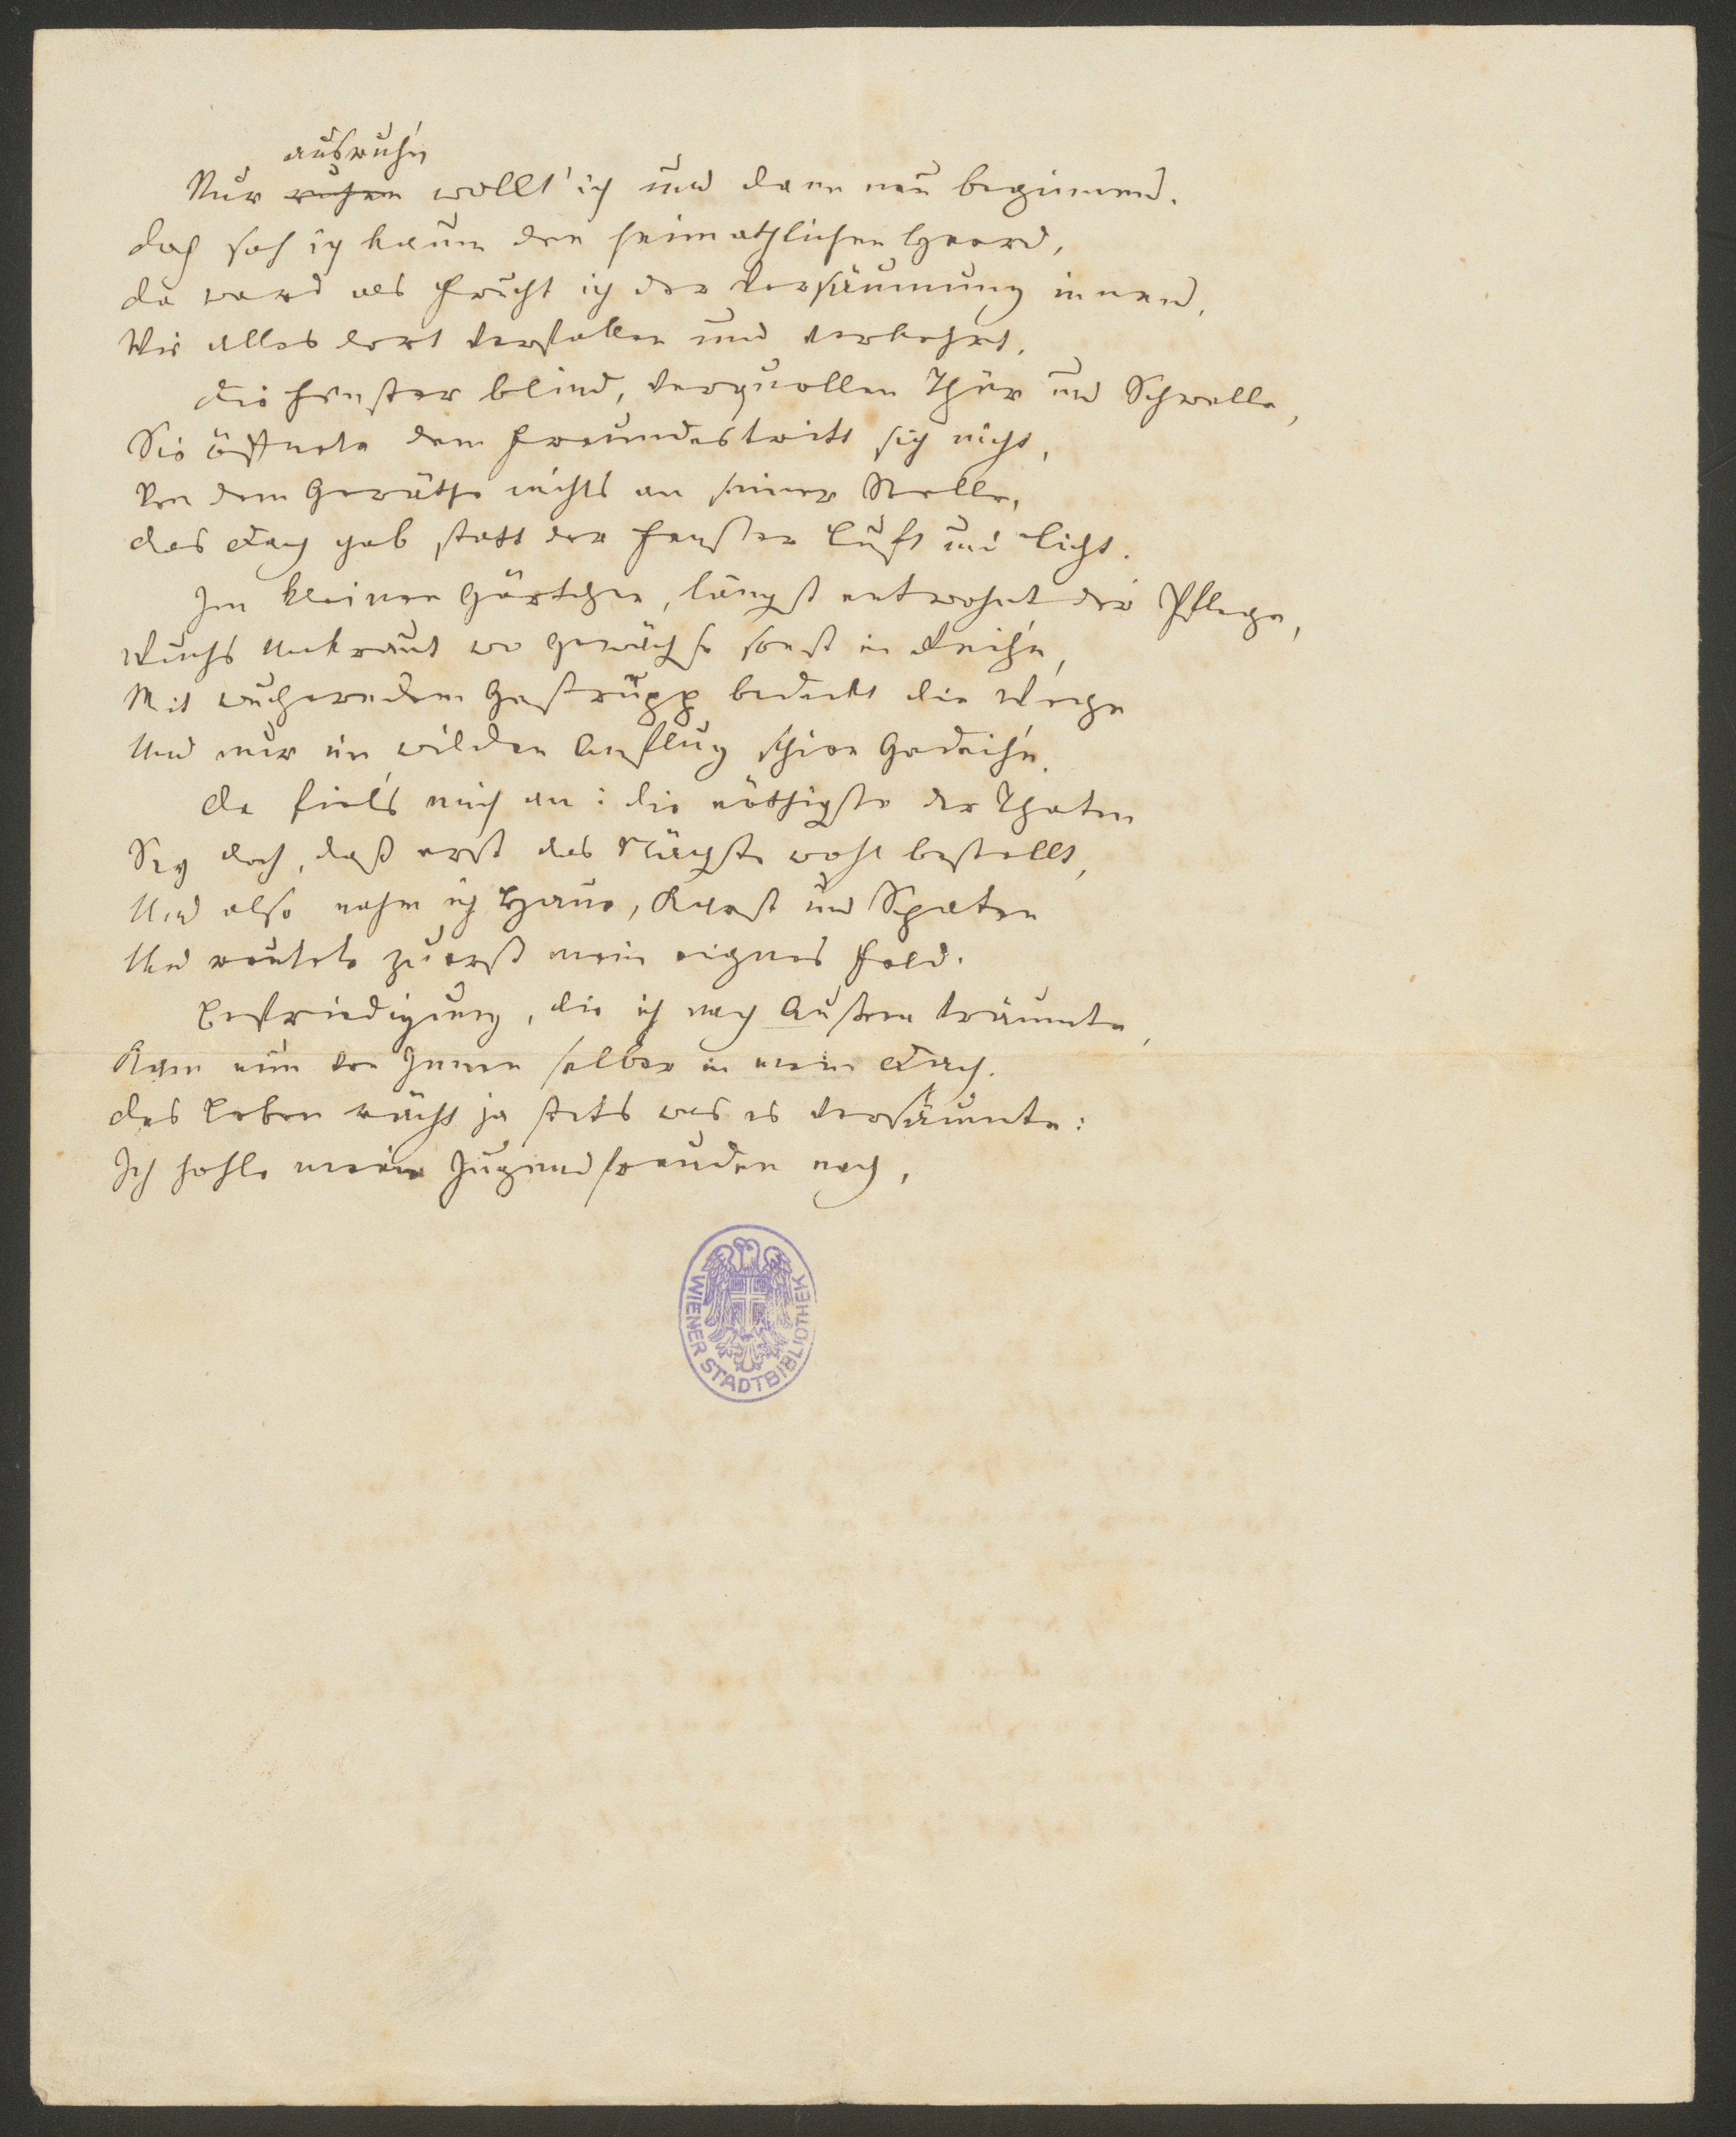 ausruh'n
Nur ruhen wollt' ich und dann neu beginnend.
Doch sah ich kaum den heimathlichen Heerd,
Da ward als Frucht ich der Versäumung innend,
Wie alles dort verfallen und verkehrt.
Die Fenster blind, verquollen Thür und Schwelle,
Sie öffnete dem Freundestritt sich nicht,
Von dem Geräthe nichts an seiner Stelle,
Das Dach gab statt der Fenster Luft und Licht.
Im kleinen Gärtchen, längst entwohnt der Pflege,
Wuchs Unkraut wo Gewächse sonst in Reih'n,
Mit wucherndem Gestrüpp bedeckt die Wege
Und nur im wilden Anflug schien Gedeih'n.
Da fiel's mich an: die nöthigste der Thaten
Sey doch, daß erst das Nächste wohl bestellt,
Und also nahm ich Haue, Karst und Spaten
Und reutete zuerst mein eignes Feld.
Befriedigung, die ich nach Außen träumte,
Kam nun von Innen selber in mein Dach.
Das Leben rächt ja stets was es versäumte:
Ich hohle meine Jugendfreuden nach,
WIENER STADTBIBLIOTHEK